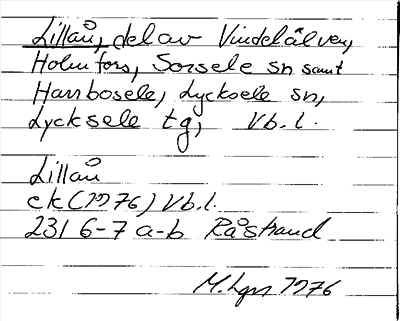 Lillån, del av Vindelälven,
Holmfors, Sorsele sn samt
Hambosele, Lycksele sn,
Lycksele tg, Vb.l.
Lillån
ek (1976) Vb.l.
231 6-7 a-b Råstrand
1976